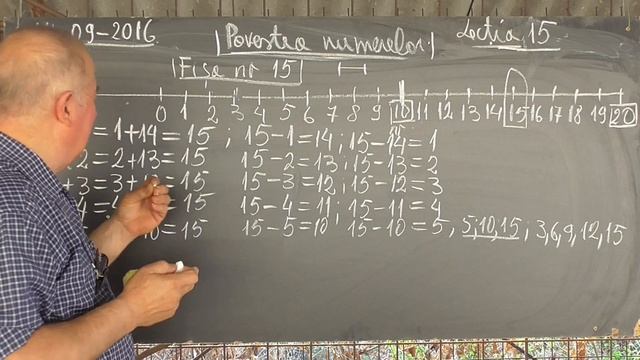 09-2016 Povestea numerelor Lecția 15
Fișa nr 15
0 1 2 3 4 5 6 7 8 9 10 11 12 13 14 15 16 17 18 19 20
= 1+14 = 15 ; 15-1=14 ; 15-14=1
2 = 2+13 = 15 15-2=13 ; 15-13=2
+3 = 3+ = 15 15-3=12 ; 15-12=3
4 = = 15 15-4=11 ; 15-11=4
10 = 15 15-5=10 15-10=5, 5,10,15 ; 3,6,9,12,15